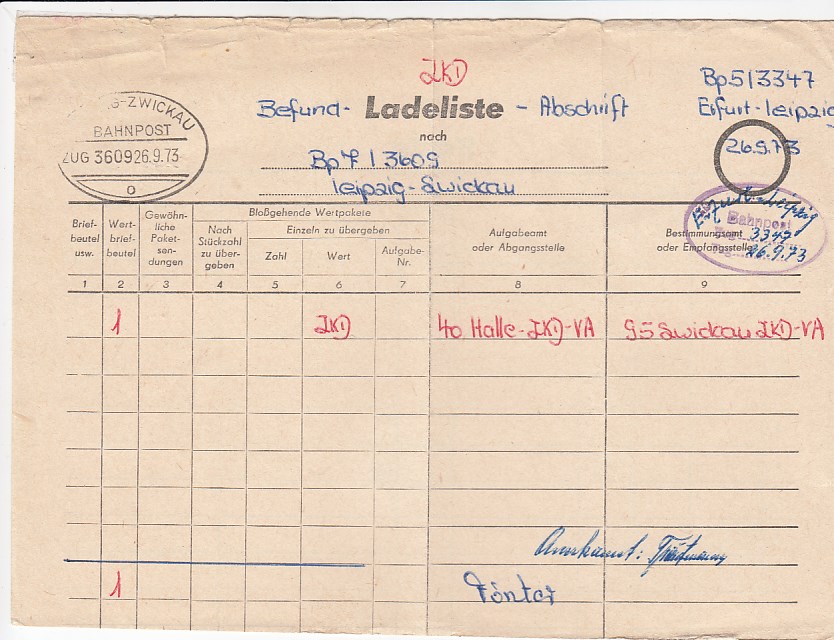 ZKD
Bp 5 | 3347
Befund- Ladeliste - Abschrift
Erfurt-Leipzig
G-ZWICKAU
BAHNPOST
ZUG 3609 26.9.73
o
nach
Bp 7 | 3609
Leipzig-Zwickau
26.9.73
Erfurt-Leipzig
Bahnpost
3347
26.9.73
Brief-
beutel
usw.
Wert-
brief-
beutel
Gewöhn-
liche
Paket-
sen-
dungen
Bloßgehende Wertpakete
Nach
Stückzahl
zu über-
geben
Einzeln zu übergeben
Zahl
Wert
Aufgabe-
Nr.
Aufgabeamt
oder Abgangsstelle
Bestimmungsamt
oder Empfangsstelle
1 2 3 4 5 6 7 8 9
1 ZKD 40 Halle-ZKD-VA 95 Zwickau ZKD-VA
Anerkannt:
1